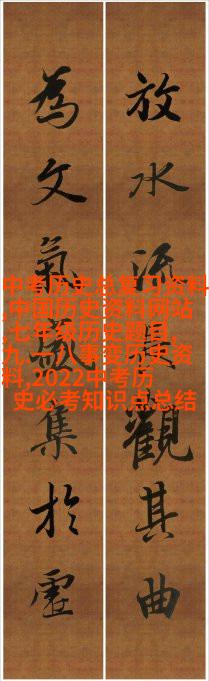 放水流觀其曲
為文氣集於虛
中考历史总复习资料
,中国历史资料网站
,七年级历史题目,
九一八事变历史资
料,2022中考历
史必考知识点总结